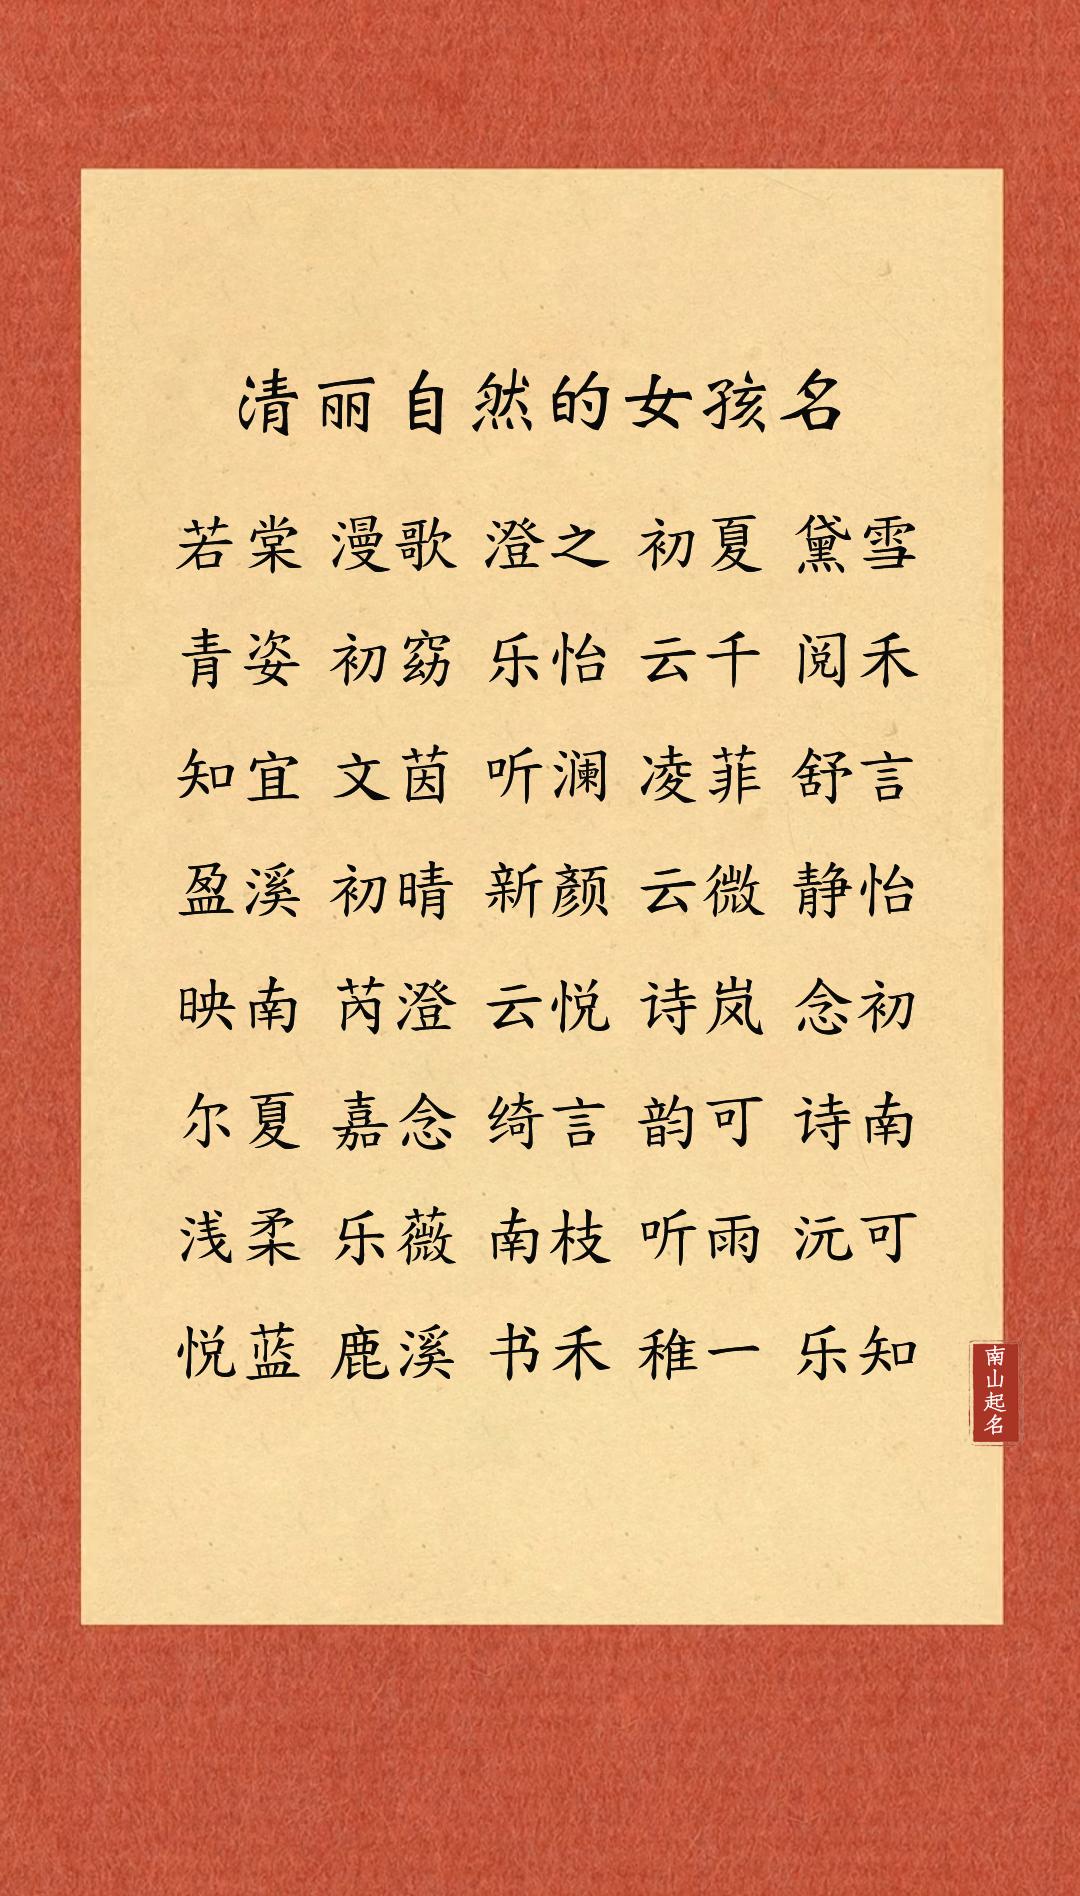 清丽自然的女孩名
若棠 漫歌 澄之 初夏 黛雪
青姿 初窈 乐怡 云千 阅禾
知宜 文茵 听澜 凌菲 舒言
盈溪 初晴 新颜 云微 静怡
映南 芮澄 云悦 诗岚 念初
尔夏 嘉念 绮言 韵可 诗南
浅柔 乐薇 南枝 听雨 沅可
悦蓝 鹿溪 书禾 稚一 乐知
南山起名